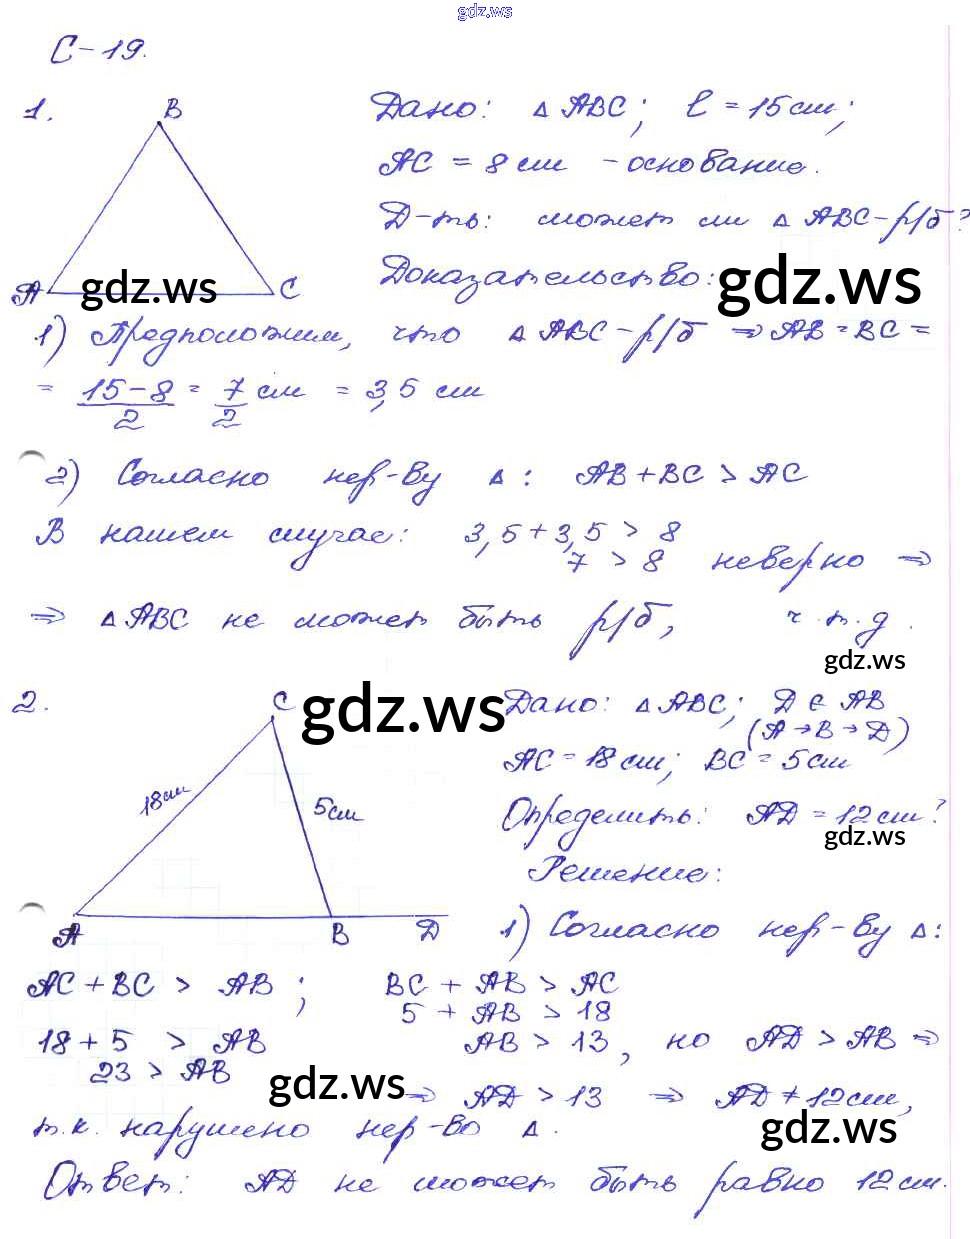 gdz.ws
С-19.
1.
B
A
C
Дано: Δ ABC; l = 15 см;
AC = 8 см - основание.
Д-ть: может ли Δ ABC - р/б?
Доказательство:
gdz.ws
gdz.ws
1) Предположим, что Δ ABC - р/б ⇒ AB = BC =
= (15-8)/2 = 7/2 см = 3,5 см
2) Согласно нер-ву Δ: AB + BC > AC
В нашем случае: 3,5 + 3,5 > 8
7 > 8 неверно ⇒
⇒ Δ ABC не может быть р/б, ч.т.д.
gdz.ws
2.
C
18 см
5 см
A
B
D
gdz.ws
Дано: Δ ABC; D ∈ AB
(A → B → D)
AC = 18 см; BC = 5 см
Определить: AD = 12 см?
gdz.ws
Решение:
1) Согласно нер-ву Δ:
AC + BC > AB; BC + AB > AC
5 + AB > 18
18 + 5 > AB AB > 13, но AD > AB ⇒
23 > AB
gdz.ws
⇒ AD > 13 ⇒ AD ≠ 12 см,
gdz.ws
т.к. нарушено нер-во Δ.
Ответ: AD не может быть равно 12 см.